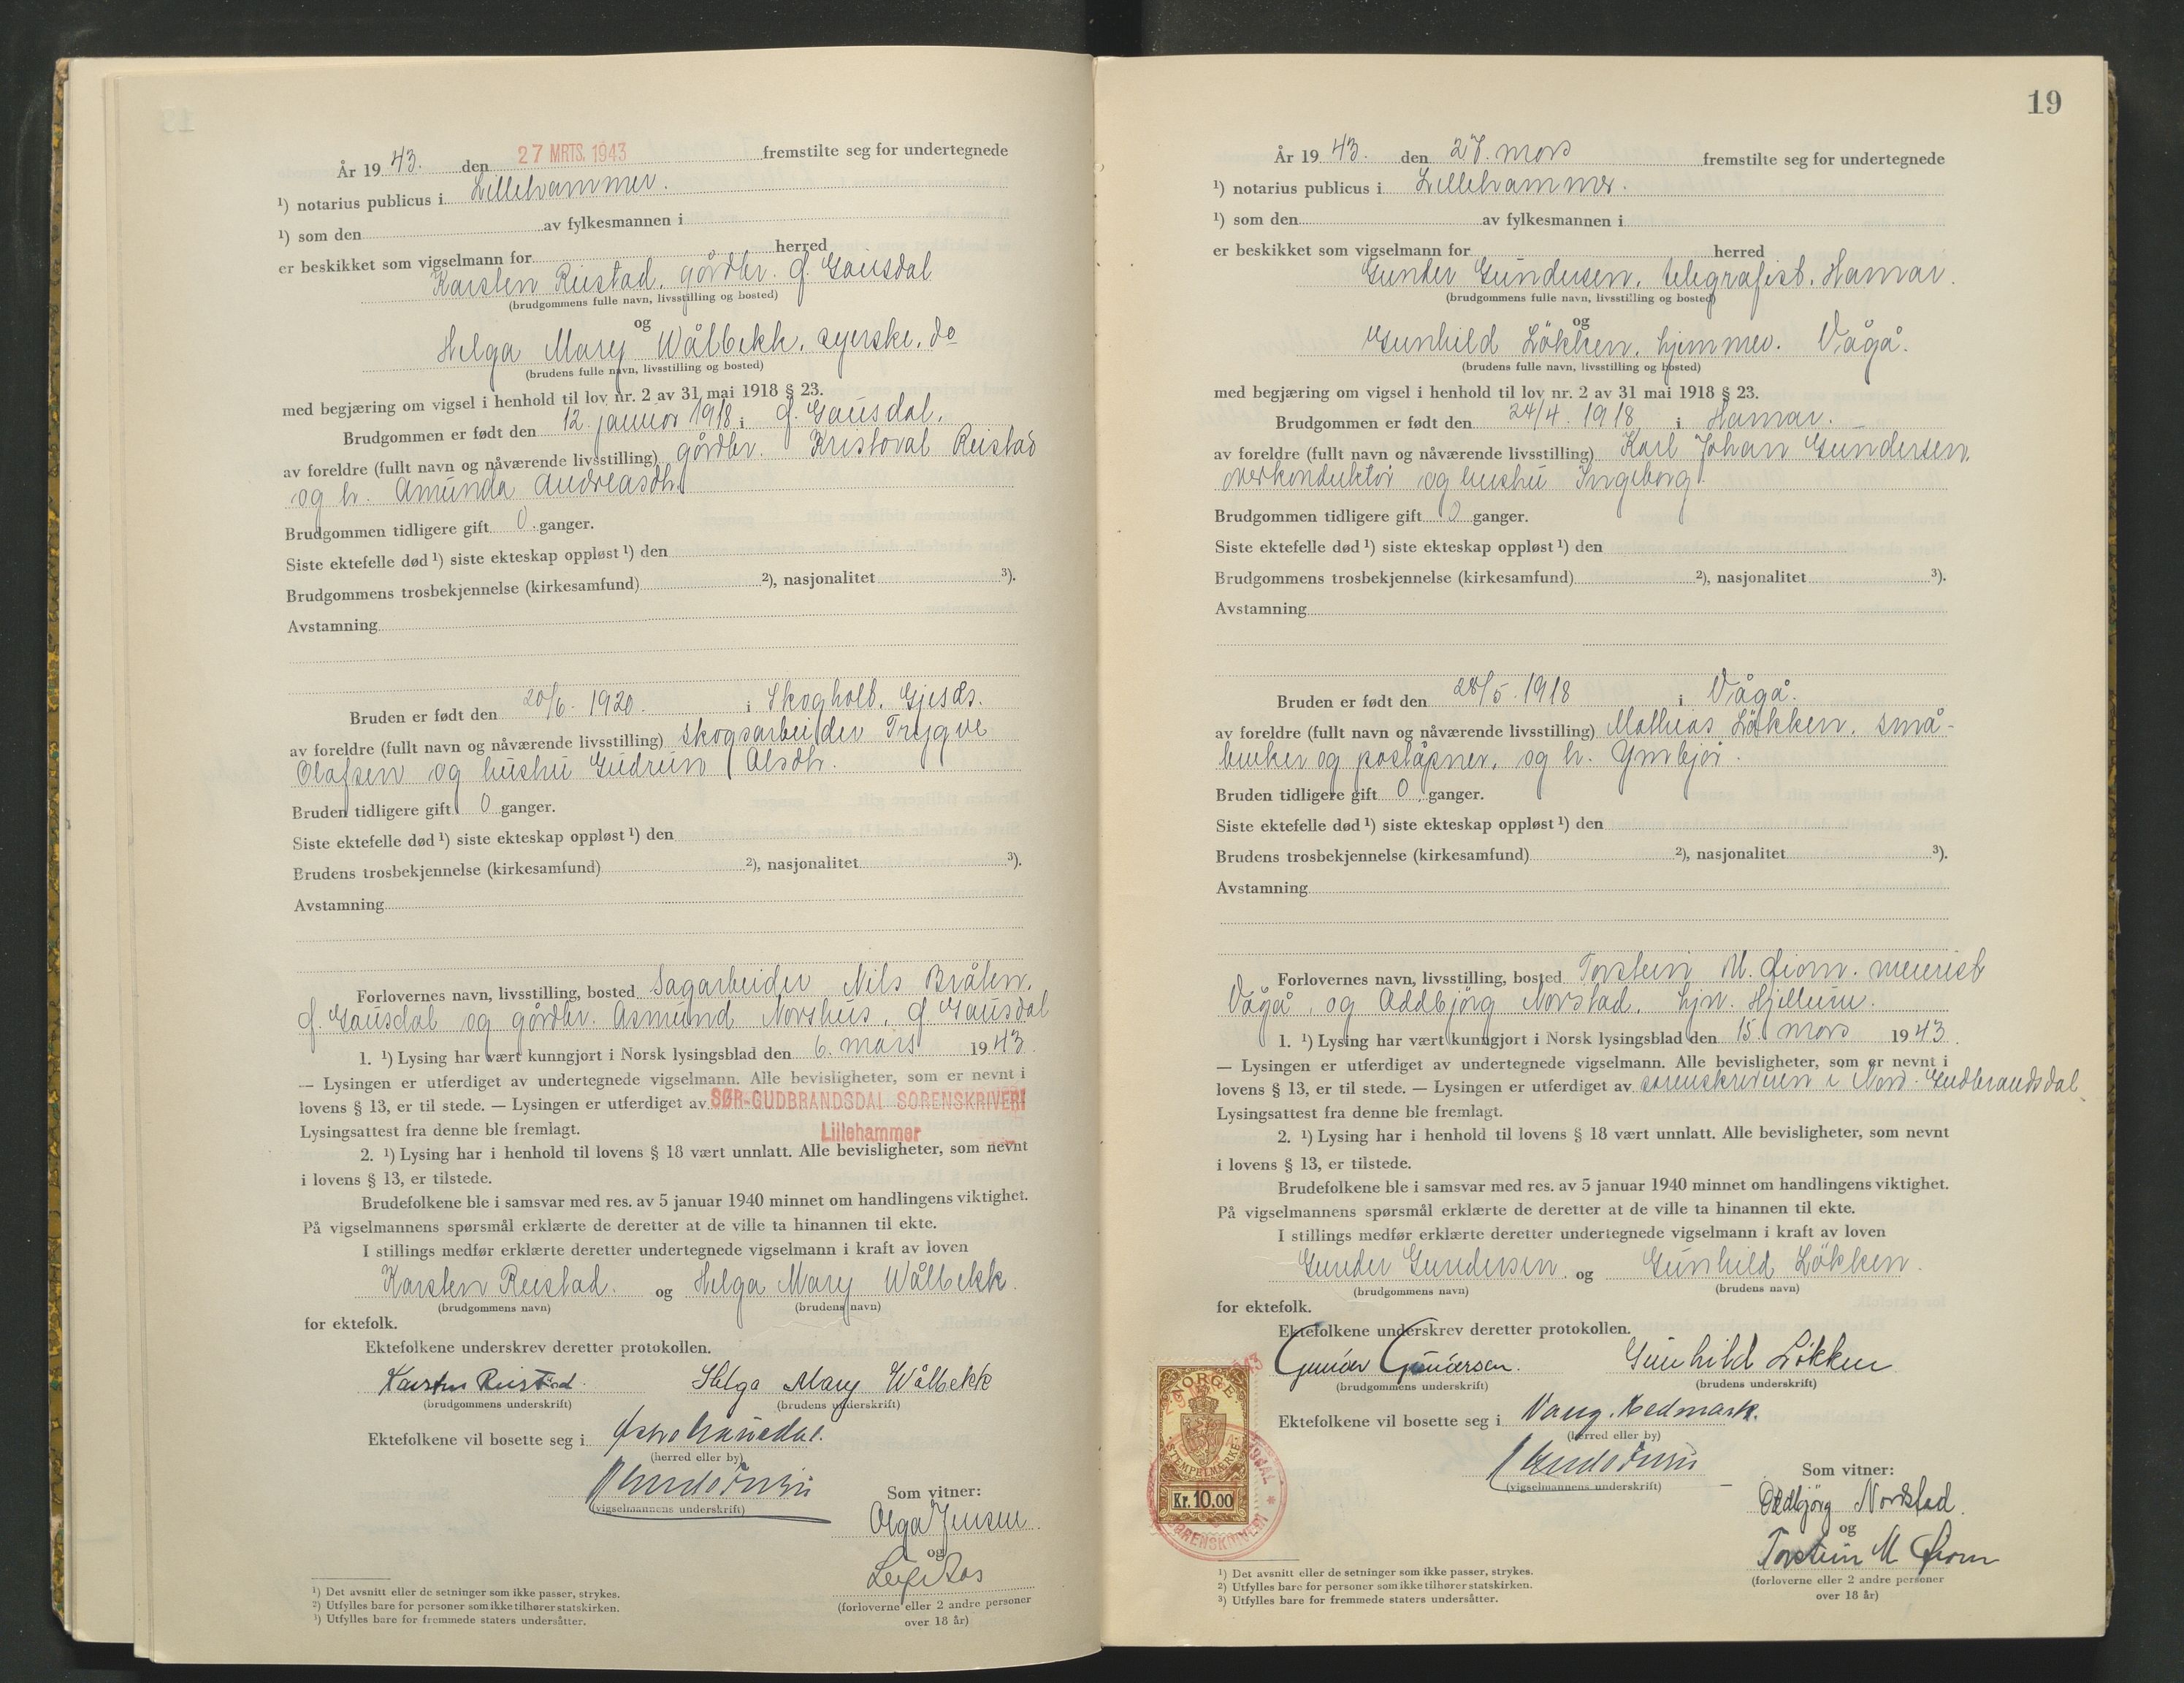 År 19 43. den 27 MRTS. 1943 fremstilte seg for undertegnede
¹) notarius publicus i Lillehammer.
¹) som den av fylkesmannen i
er beskikket som vigselmann for herred
Karsten Reistad, gårdbr. Ø. Gausdal
(brudgommens fulle navn, livsstilling og bosted)
og
Helga Mary Wålbekk, syerske, do
(brudens fulle navn, livsstilling og bosted)
med begjæring om vigsel i henhold til lov nr. 2 av 31 mai 1918 § 23.
Brudgommen er født den 12. januar 1918 i Ø. Gausdal.
av foreldre (fullt navn og nåværende livsstilling) gårdbr. Kristoval Reistad
og h. Amunda Andreasdtr.
Brudgommen tidligere gift 0 ganger.
Siste ektefelle død ¹) siste ekteskap oppløst ¹) den
Brudgommens trosbekjennelse (kirkesamfund) ²), nasjonalitet ³).
Avstamning
Bruden er født den 20/6. 1920. i Skogholt, Gjesås.
av foreldre (fullt navn og nåværende livsstilling) skogsarbeider Trygve
Olafsen og hushu Gudrun Alsdtr.
Bruden tidligere gift 0 ganger.
Siste ektefelle død ¹) siste ekteskap oppløst ¹) den
Brudens trosbekjennelse (kirkesamfund) ²), nasjonalitet ³).
Avstamning
Forlovernes navn, livsstilling, bosted Sagarbeider Nils Bråten,
Ø. Gausdal og gårdbr. Asmund Norshus, Ø. Gausdal
1. ¹) Lysing har vært kunngjort i Norsk lysingsblad den 6. mars 19 43.
— Lysingen er utferdiget av undertegnede vigselmann. Alle bevisligheter, som er nevnt i
lovens § 13, er til stede. — Lysingen er utferdiget av SØR-GUDBRANDSDAL SORENSKRIVERI
Lysingsattest fra denne ble fremlagt. Lillehammer
2. ¹) Lysing har i henhold til lovens § 18 vært unnlatt. Alle bevisligheter, som nevnt
i lovens § 13, er tilstede.
Brudefolkene ble i samsvar med res. av 5 januar 1940 minnet om handlingens viktighet.
På vigselmannens spørsmål erklærte de deretter at de ville ta hinannen til ekte.
I stillings medfør erklærte deretter undertegnede vigselmann i kraft av loven
Karsten Reistad. og Helga Mary Wålbekk.
(brudgommens navn) (brudens navn)
for ektefolk.
Ektefolkene underskrev deretter protokollen.
Karsten Reistad. Helga Mary Wålbekk
(brudgommens underskrift) (brudens underskrift)
Ektefolkene vil bosette seg i Østre Gausdal.
(herred eller by)
(vigselmannens underskrift)
Som vitner:
Olga Jensen.
og
Leif Aas
(forloverne eller 2 andre personer
over 18 år)
¹) Det avsnitt eller de setninger som ikke passer, strykes.
²) Utfylles bare for personer som ikke tilhører statskirken.
³) Utfylles bare for fremmede staters undersåtter.
19
År 19 43. den 27. mars fremstilte seg for undertegnede
¹) notarius publicus i Lillehammer.
¹) som den av fylkesmannen i
er beskikket som vigselmann for herred
Gunder Gundersen, telegrafist, Hamar.
(brudgommens fulle navn, livsstilling og bosted)
og
Gunhild Løkken, hjemmev. Vågå.
(brudens fulle navn, livsstilling og bosted)
med begjæring om vigsel i henhold til lov nr. 2 av 31 mai 1918 § 23.
Brudgommen er født den 24/4. 1918 i Hamar.
av foreldre (fullt navn og nåværende livsstilling) Karl Johan Gundersen,
overkonduktør og hushu Ingeborg.
Brudgommen tidligere gift 0 ganger.
Siste ektefelle død ¹) siste ekteskap oppløst ¹) den
Brudgommens trosbekjennelse (kirkesamfund) ²), nasjonalitet ³).
Avstamning
Bruden er født den 28/5. 1918 i Vågå.
av foreldre (fullt navn og nåværende livsstilling) Mathias Løkken, små-
bruker og poståpner, og h. Ymbjør.
Bruden tidligere gift 0 ganger.
Siste ektefelle død ¹) siste ekteskap oppløst ¹) den
Brudens trosbekjennelse (kirkesamfund) ²), nasjonalitet ³).
Avstamning
Forlovernes navn, livsstilling, bosted Torstein M. Øiom. meierist
Vågå, og Oddbjörg Norstad, hjv. Hjellum.
1. ¹) Lysing har vært kunngjort i Norsk lysingsblad den 15. mars 19 43.
— Lysingen er utferdiget av undertegnede vigselmann. Alle bevisligheter, som er nevnt i
lovens § 13, er til stede. — Lysingen er utferdiget av sorenskriveren i Nord-Gudbrandsdal
Lysingsattest fra denne ble fremlagt.
2. ¹) Lysing har i henhold til lovens § 18 vært unnlatt. Alle bevisligheter, som nevnt
i lovens § 13, er tilstede.
Brudefolkene ble i samsvar med res. av 5 januar 1940 minnet om handlingens viktighet.
På vigselmannens spørsmål erklærte de deretter at de ville ta hinannen til ekte.
I stillings medfør erklærte deretter undertegnede vigselmann i kraft av loven
Gunder Gundersen. og Gunhild Løkken.
(brudgommens navn) (brudens navn)
for ektefolk.
Ektefolkene underskrev deretter protokollen.
Gunder Gundersen. Gunhild Løkken
(brudgommens underskrift) (brudens underskrift)
Ektefolkene vil bosette seg i Vang, Hedmark.
(herred eller by)
(vigselmannens underskrift)
NORGE
STEMPELMÆRKE
Kr. 10.00
SORENSKRIVERI
Som vitner:
Oddbjörg Norstad.
og
Torstein M Øiom
(forloverne eller 2 andre personer
over 18 år)
¹) Det avsnitt eller de setninger som ikke passer, strykes.
²) Utfylles bare for personer som ikke tilhører statskirken.
³) Utfylles bare for fremmede staters undersåtter.